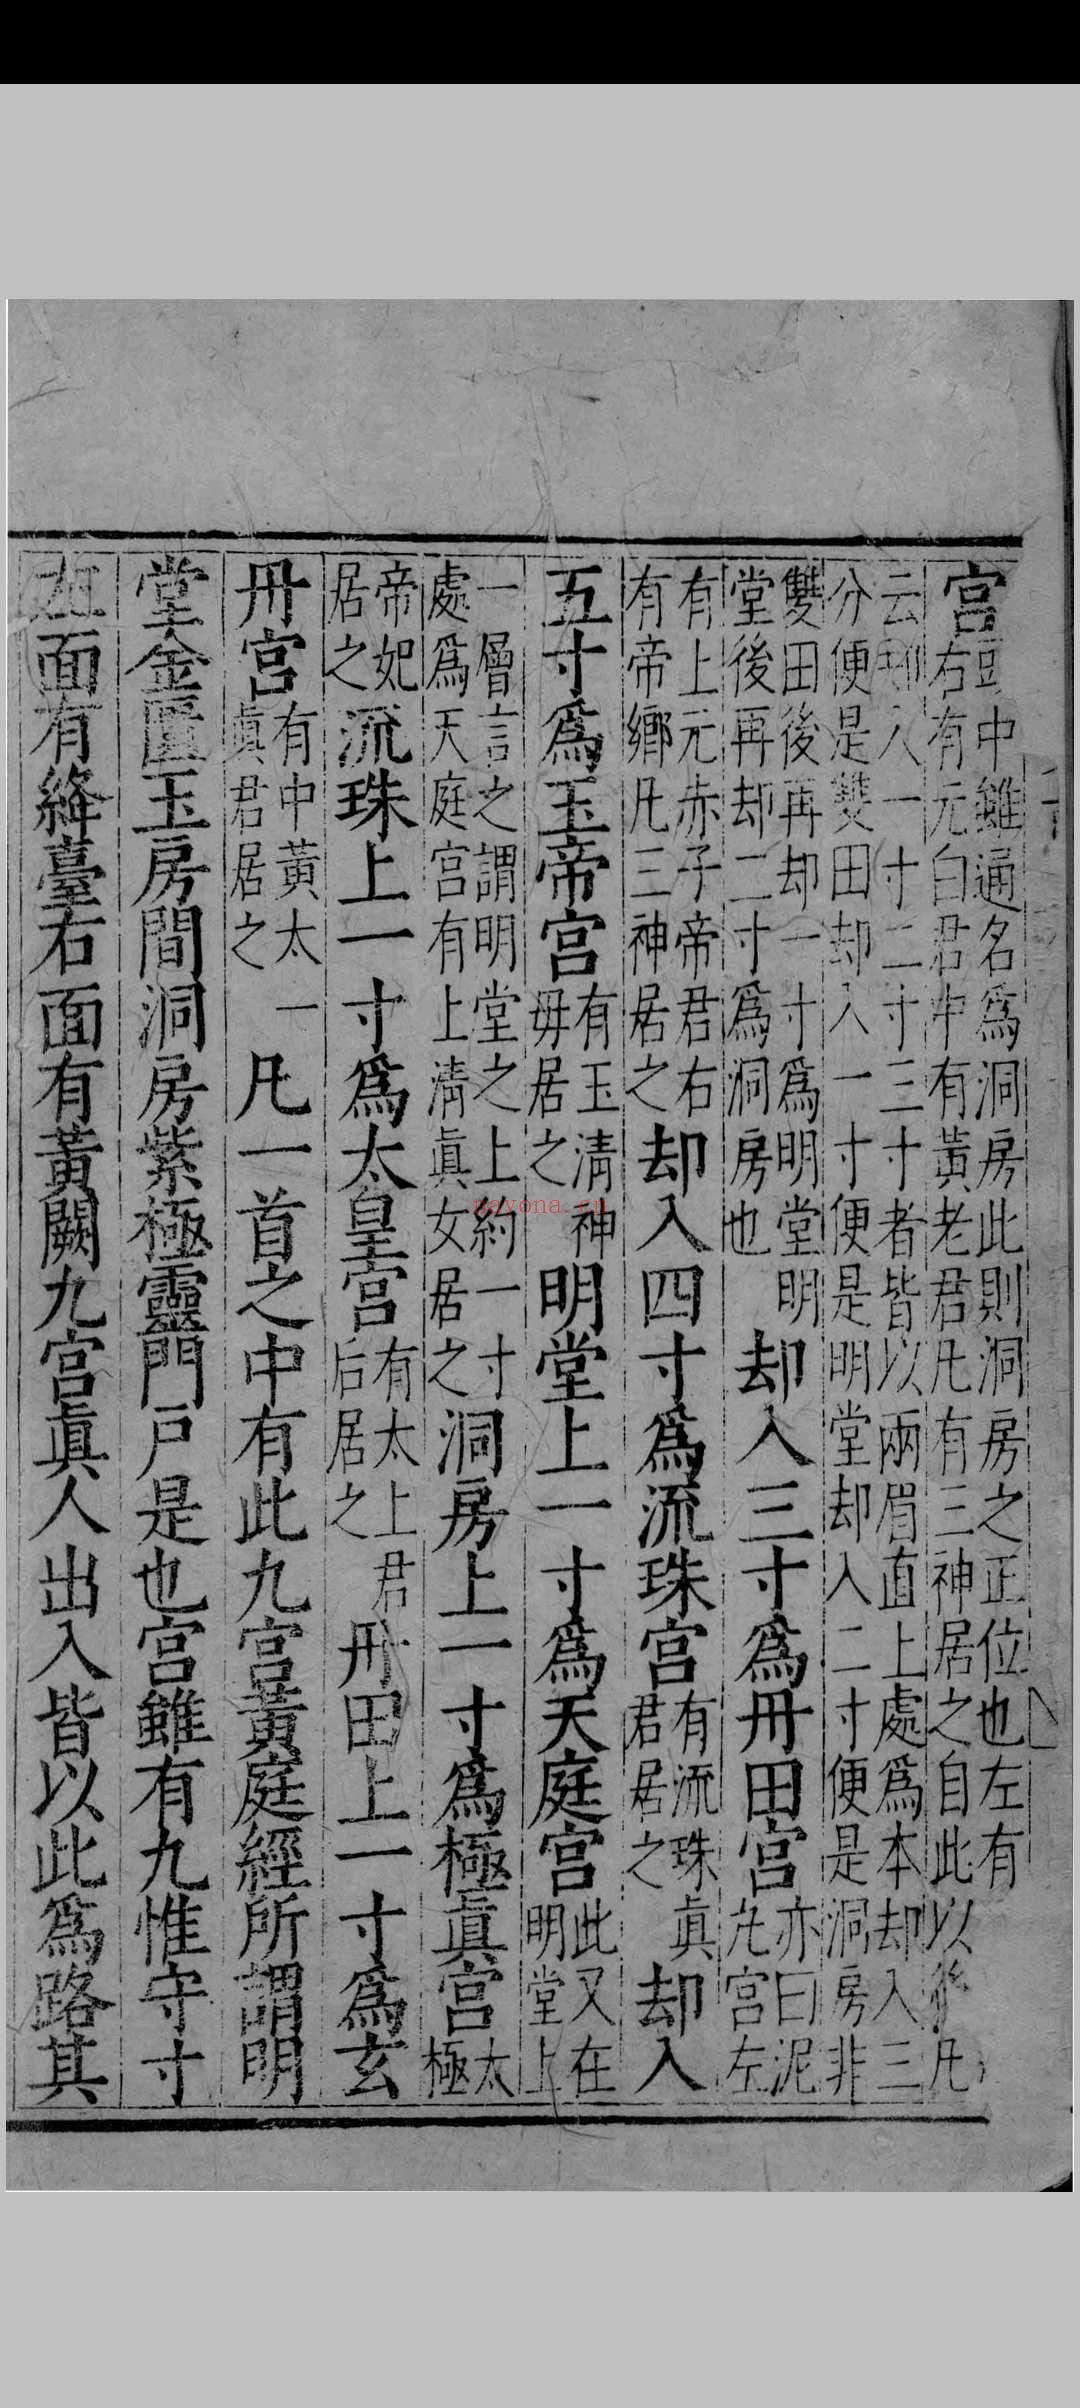 宮頭中雖通名爲洞房此則洞房之正位也左有右有元白君中有黃老君凡有三神居之自此以後凡
云却入一寸二寸三寸者皆以兩眉直上處爲本却入三分便是雙田却入一寸便是明堂却入二寸便是洞房非
雙田後再却一寸爲明堂明堂後再却二寸爲洞房也却入三寸爲丹田宮亦曰泥凡宮左
有上元赤子帝君右有帝鄉凡三神居之却入四寸爲流珠宮有流珠眞君居之却入
五寸爲玉帝宮有玉清神毋居之明堂上一寸爲天庭宮此又在明堂上
一層言之謂明堂之上約一寸處爲天庭宮有上清眞女居之洞房上一寸爲極眞宮太極
帝妃居之流珠上一寸爲太皇宮有太上君后居之丹田上一寸爲玄
丹宮有中黃太一眞君居之凡一首之中有此九宮黃庭經所謂明
堂金匱玉房間洞房紫極靈門戶是也宮雖有九惟守寸
左面有絳臺右面有黃闕九宮眞人出入皆以此爲路其
nayona.cn